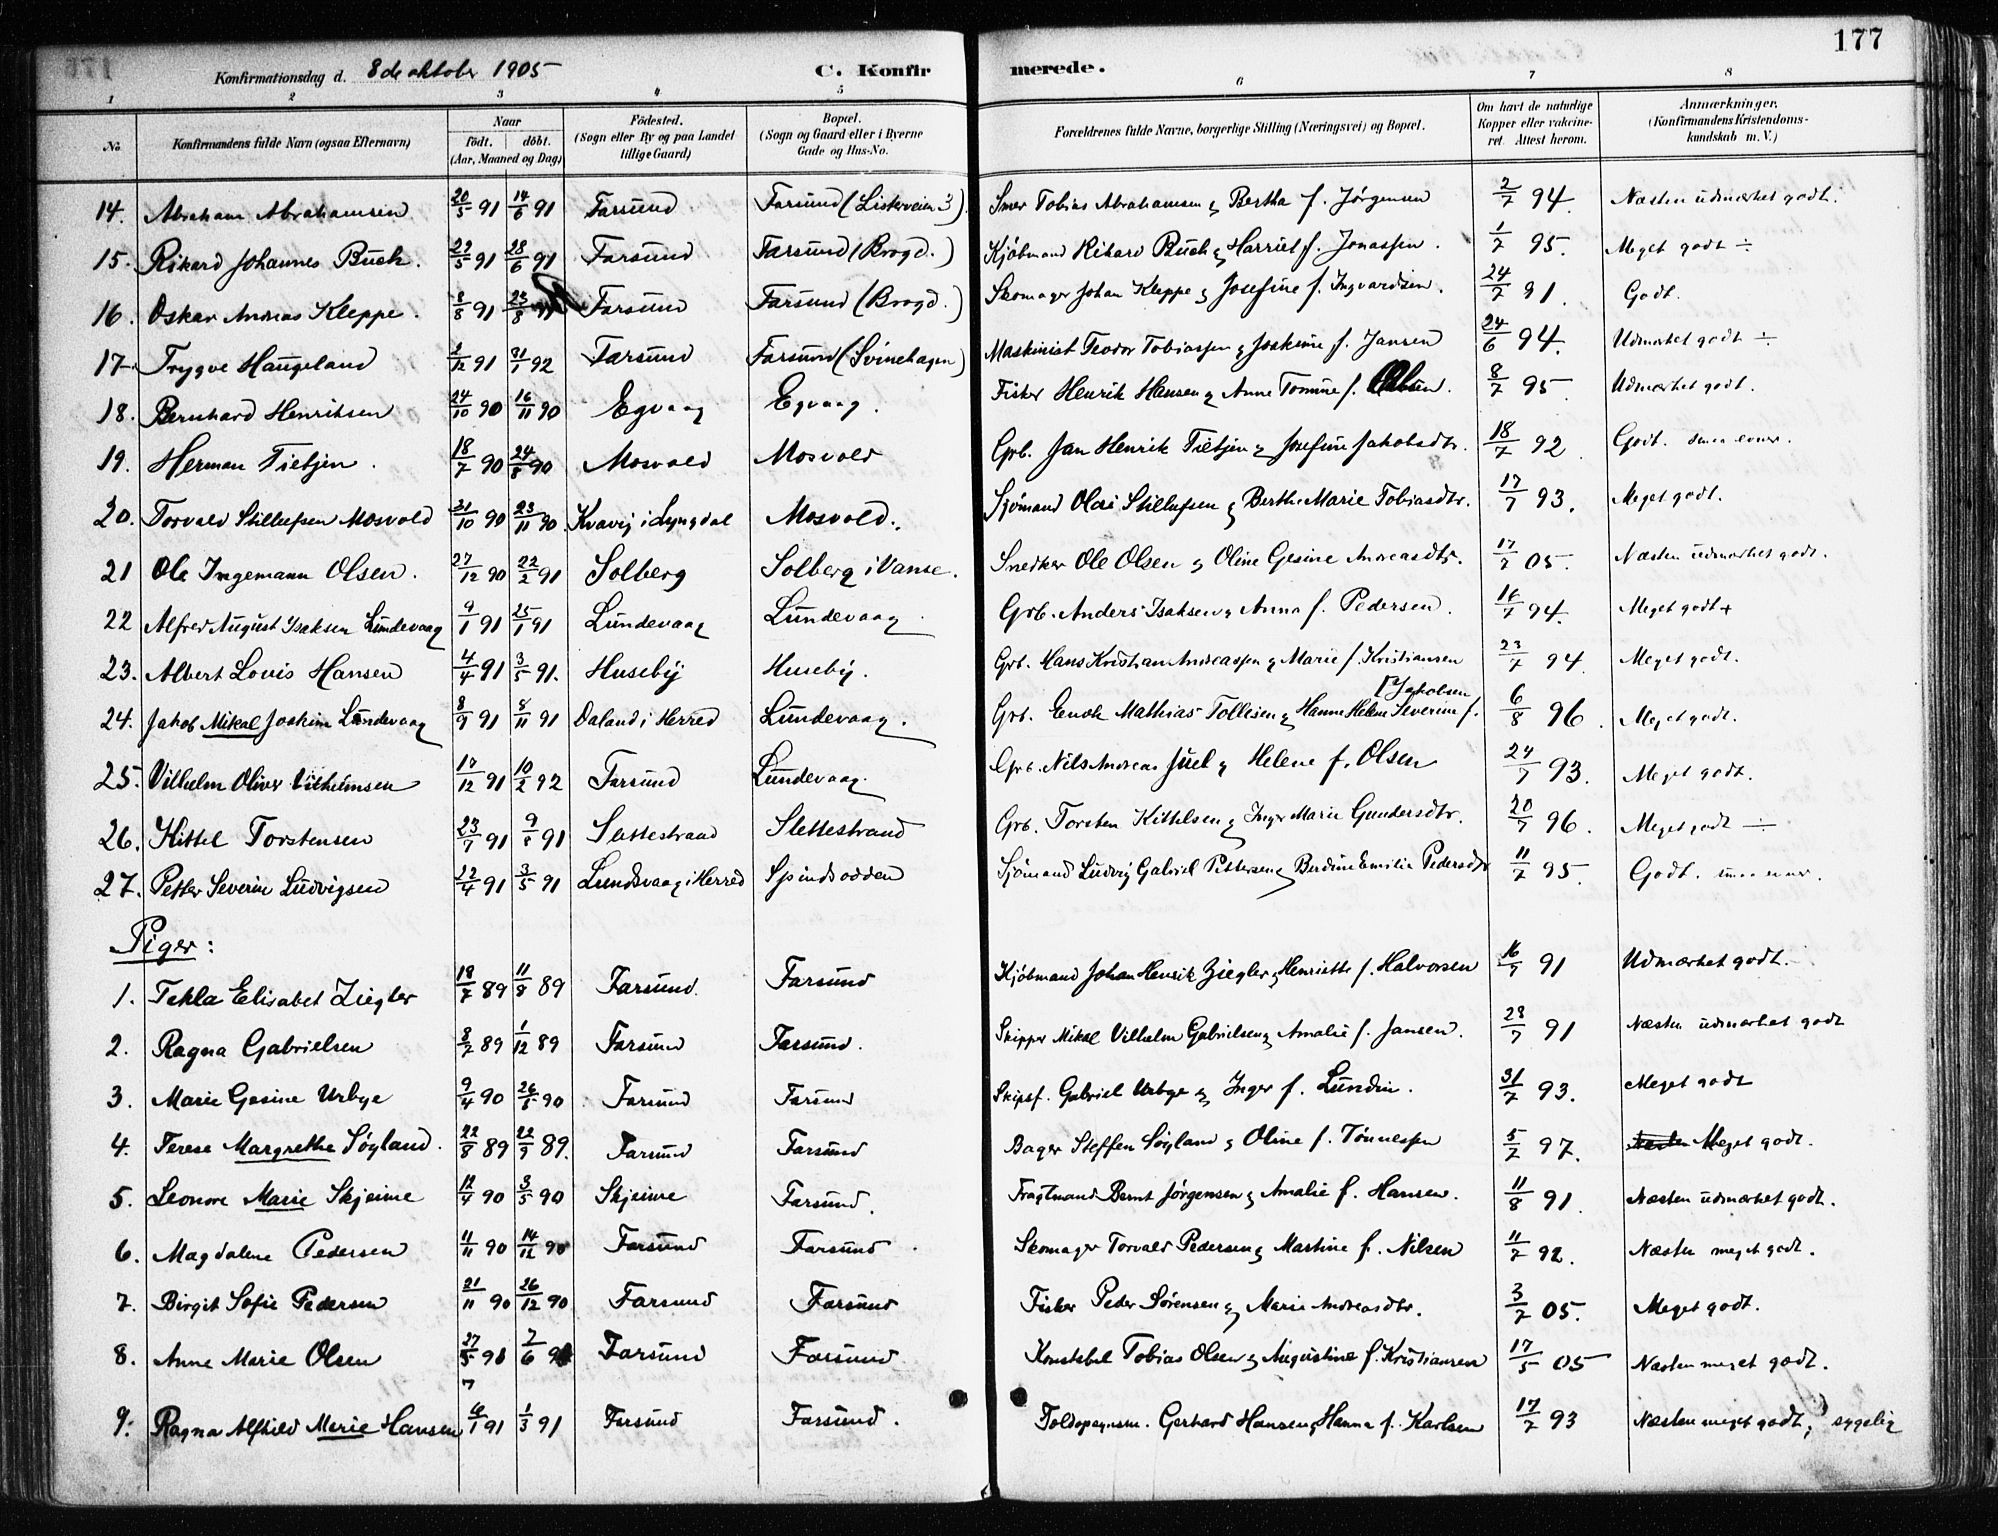 177
Konfirmationsdag d. 8de oktober 1905 C. Konfirmerede.
1 2 3 4 5 6 7 8
No. Konfirmandens fulde Navn (ogsaa Efternavn) Naar født. døbt. (Aar, Maaned og Dag) Fødested. (Sogn eller By og paa Landet tillige Gaard) Bopæl. (Sogn og Gaard eller i Byerne Gade og Hus-No. Forældrenes fulde Navne, borgerlige Stilling (Næringsvei) og Bopæl. Om havt de naturlige Kopper eller vakcineret Attest herom. Anmærkninger. (Konfirmandens Kristendomskundskab m. V.)
14. Abraham Abrahamsen 20/5 91 14/6 91 Farsund Farsund (Listerveien 3) Smed Tobias Abrahamsen & Bertha f. Jørgensen 2/7 94. Næsten udmærket godt.
15. Rikard Johannes Buch. 22/5 91 28/6 91 Farsund Farsund (Brogd.) Kjøbmand Rikard Buch & Harriet f. Jonassen. 1/7 95. Meget godt ÷
16. Oskar Andreas Kleppe. 8/8 91 23/8 Farsund Farsund (Brogd.) Skomager Johan Kleppe & Josefine f. Ingvardsen. 24/7 91. Godt.
17 Trygve Haugeland 2/12 91 31/1 92 Farsund Farsund (Svinehagen) Maskinist Teodor Tobiassen & Joakime f. Jansen 24/6 94. Udmærket godt ÷
18. Bernhard Henriksen 24/10 90 16/11 90 Egvaag Egvaag. Fisker Henrik Hansen & Anne Tomine f. Olsen. 8/7 95 Udmærket godt.
19. Herman Tietjen. 18/7 90 24/8 90 Mosvold Mosvold Grb. Jan Henrik Tietjen & Josefine Jakobsdtr. 18/7 92. Godt. smaa evner.
20. Torvald Stillufsen Mosvold 31/10 90 23/11 90. Kvavig i Lyngdal Mosvold. Sjømand Olai Stillufsen & Berthe Marie Tobiasdtr. 17/7 93. Meget godt.
21 Ole Ingemann Olsen. 27/12 90 22/2 91 Solberg Solberg i Vanse. Snedker Ole Olsen & Oline Gesine Andreasdtr. 17/7 05. Næsten udmærket godt.
22 Alfred August Isaksen Lundevaag 9/1 91 25/1 91 Lundevaag Lundevaag. Grb. Anders Isaksen & Anna f. Pedersen. 16/7 94. Meget godt +
23. Albert Lovis Hansen 4/4 91 3/5 91. Huseby Huseby. Grb. Hans Kristian Andreassen & Marie f. Kristiansen 23/7 94. Meget godt.
24. Jakob Mikal Joakim Lundevaag 8/9 91 8/11 91 Daland i Herred Lundevaag. Grb. Enok Mathias Tollisen & Hanne Helene Severine f. [Jakobsen 6/8 96. Meget godt.
25. Vilhelm Oliver Vilhelmsen 17/12 91 10/2 92 Farsund Lundevaag. Grb. Nils Andreas Juel & Helene f. Olsen 24/7 93. Meget godt.
26. Kittel Torstensen 23/7 91 9/8 91 Slettestrand Slettestrand Grb. Torsten Kittelsen & Inger Marie Gundersdtr. 20/7 96. Meget godt ÷
27. Petter Severin Ludvigsen 22/4 91 3/5 91 Lundsvaag i Herred Spindsodden Sjømand Ludvig Gabriel Pettersen & Berdine Emilie Pedersdtr 11/7 95. Godt. smaa evner.
Piger:
1. Tekla Elisabet Ziegler 18/7 89 11/8 89 Farsund. Farsund Kjøbmand Johan Henrik Ziegler & Henriette f. Halvorsen 16/9 91 Udmærket godt.
2. Ragna Gabrielsen 8/7 89 1/12 89 Farsund Farsund. Skipper Mikal Vilhelm Gabrielsen & Amalie f. Jansen. 28/7 91 Næsten udmærket godt
3. Marie Gesine Urbye 9/4 90 26/5 90 Farsund Farsund Skipsf. Gabriel Urbye & Inger f. Lundin. 31/7 93. Meget godt
4. Terese Margrethe Søyland. 22/8 89 22/9 89. Farsund Farsund Bager Steffen Søyland & Oline f. Tønnessen 5/7 97. Meget godt.
5. Leonore Marie Skjeime 12/4 90 3/5 90 Skjeime Farsund. Fragtmand Bernt Jørgensen & Amalie f. Hansen. 11/8 91. Næsten udmærket godt.
6. Magdalene Pedersen 11/11 90 14/12 90 Farsund Farsund. Skomager Torvald Pedersen & Martine f. Nilsen 11/7 92. Næsten meget godt.
7. Birgit Sofie Pedersen 21/11 90 26/12 90 Farsund Farsund Fisker Peder Sørensen & Marie Andreasdtr. 3/7 05. Meget godt.
8. Anne Marie Olsen 27/5 91 7/6 91 Farsund Farsund. Konstabel Tobias Olsen & Augustine f. Kristiansen 17/5 05 Næsten meget godt.
9. Ragna Alfhild Marie Hansen 6/1 91 1/3 91 Farsund Farsund. Toldopsynsm. Gerhard Hansen & Hanna f. Karlsen 17/7 93 Næsten meget godt; sygelig